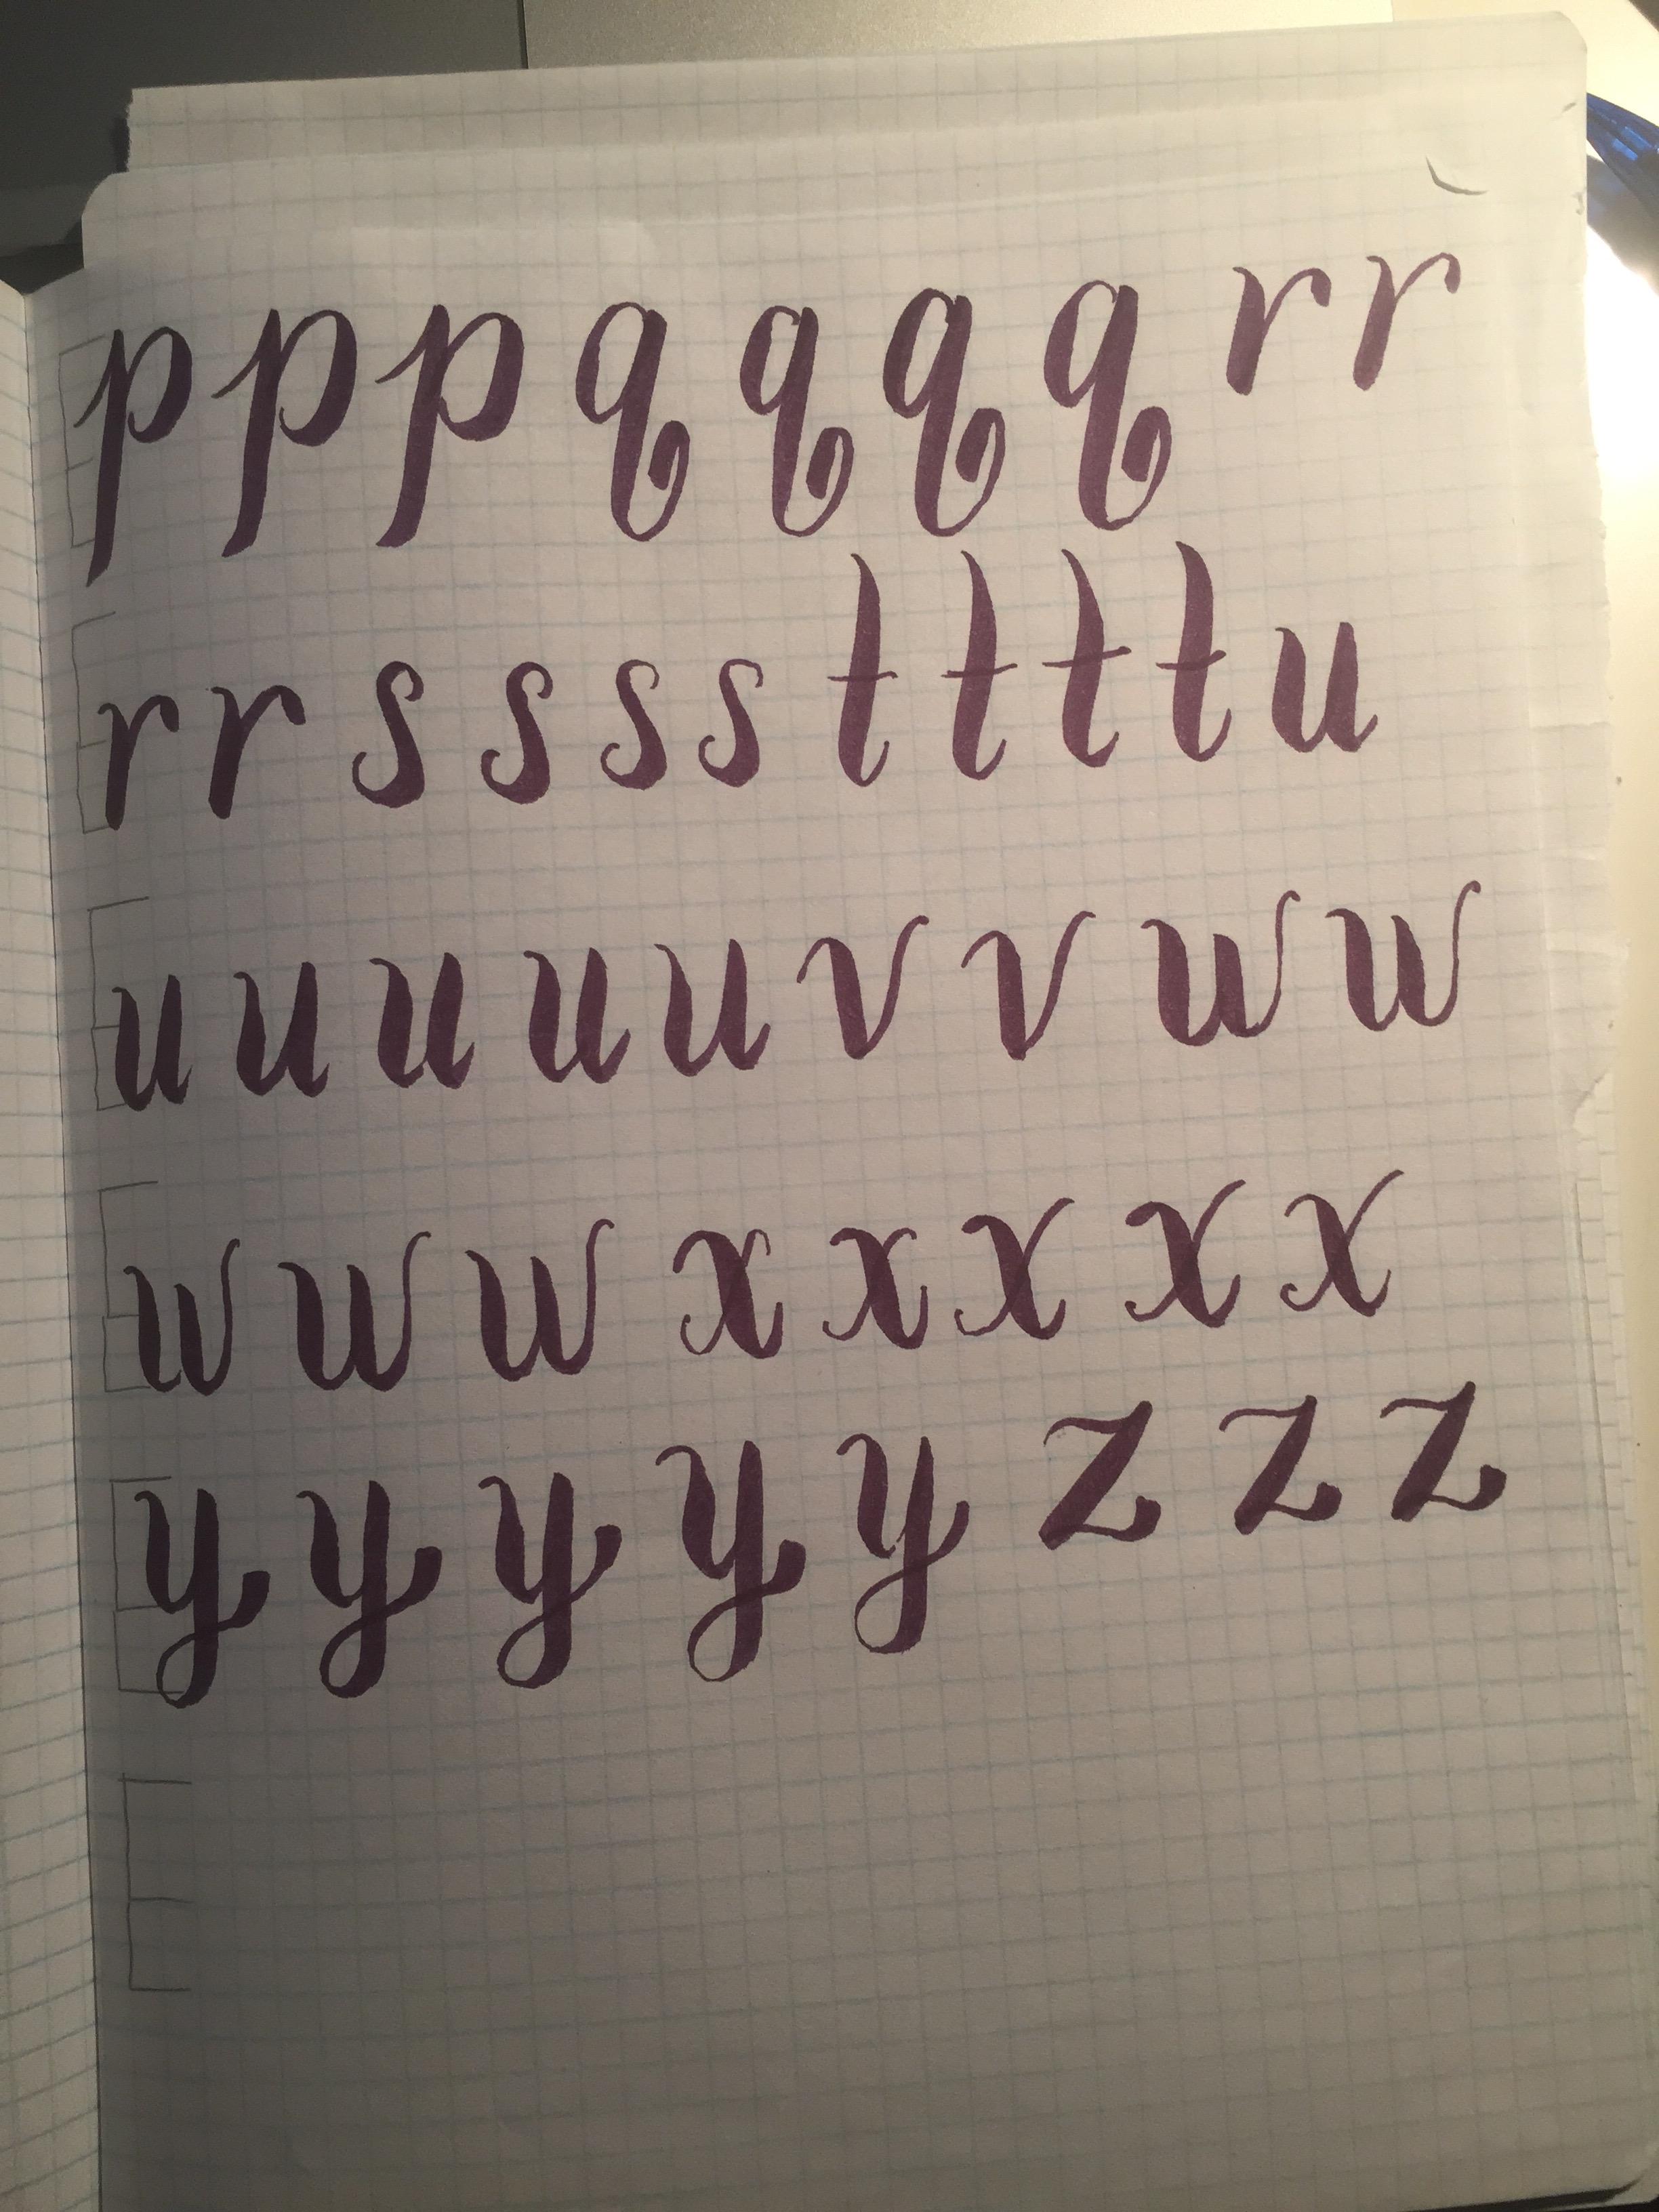 p p p q q q q r r
r r s s s s t t t t u
u u u u u v v w w
w w w x x x x x
y y y y y z z z